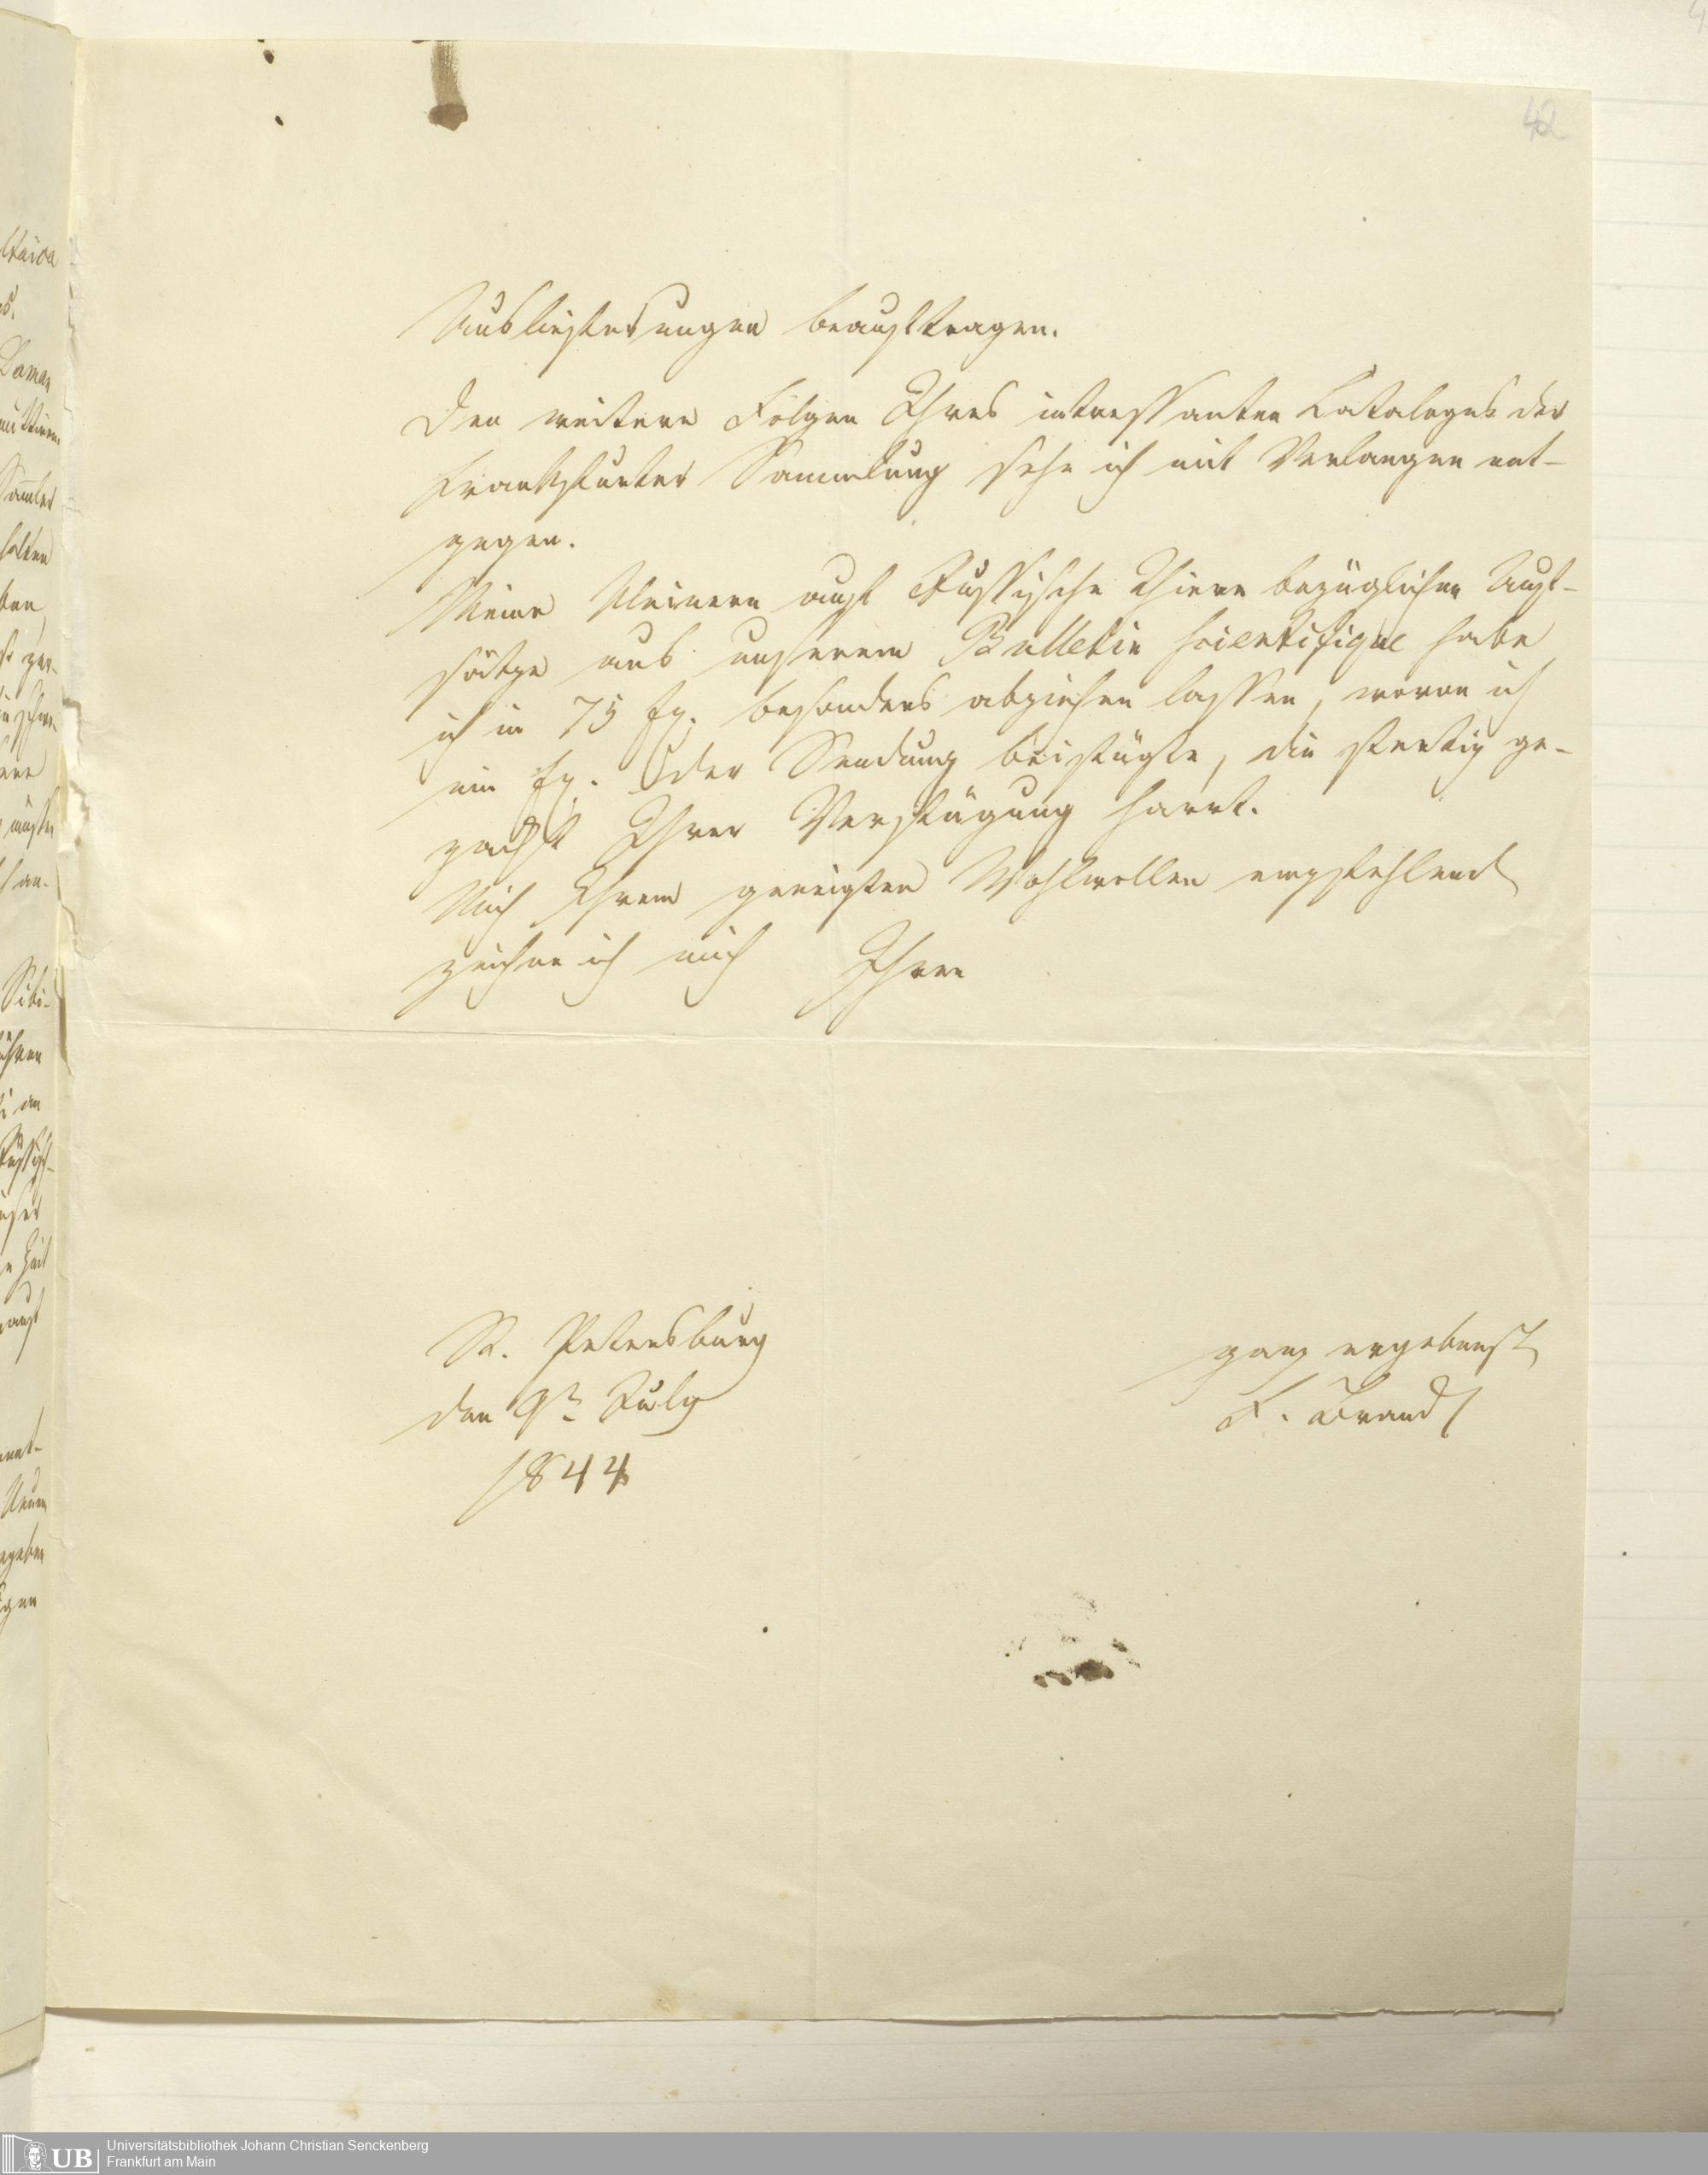 42
Auslieferungen beauftragen.
Den weitern Folgen Ihres intressanten Cataloges der
Frankfurter Sammlung sehe ich mit Verlangen ent-
gegen.
Meine kleinern auf Russische Thiere bezüglichen Auf-
sätze aus unserem Bulletin scientifique habe
ich in 75 Ex. besonders abziehen lassen, wovon ich
ein Ex. der Sendung beifügte, die fertig ge-
packt Ihrer Verfügung harrt.
Mich Ihrem geneigten Wohlwollen empfehlend
zeichne ich mich Ihren
St. Petersburg
den 9n July
1844
ganz ergebenst
F. Brandt
UB
Universitätsbibliothek Johann Christian Senckenberg
Frankfurt am Main